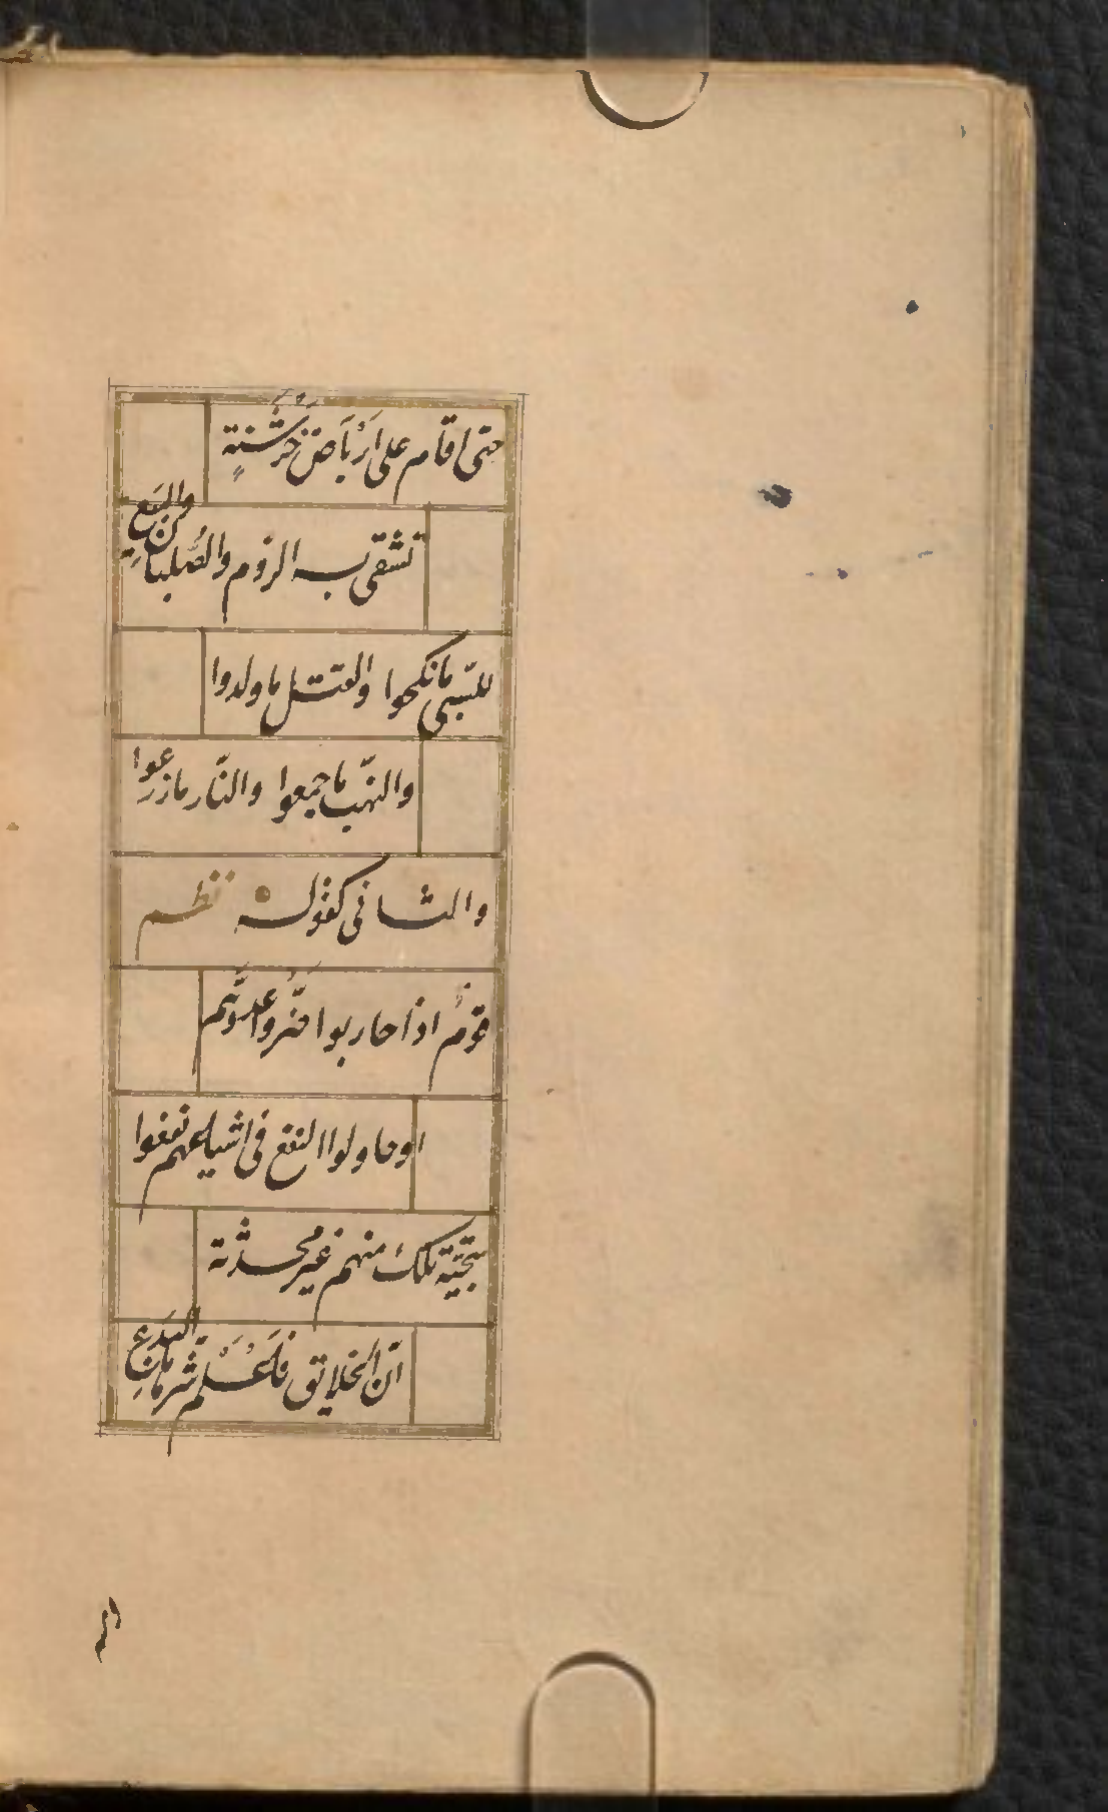 حتى اقام على اَرْبَاضِ خَرْشَنَةٍ
تشقى به الروم والصُّلبانِ والبِيَع
للسّبى ما نكحوا والقتل ما ولدوا
والنهّب ما جمعوا والنّار ما زرعوا
والثانى كقوله نظم
قومٌ اذا حاربوا ضرّوا عدوَّهم
او حاولوا النفع فى اشياعهم نفعوا
سجيّة تلك منهم غير محدثة
انّ الخلائق فَاعْلَم شرّها البِدَع